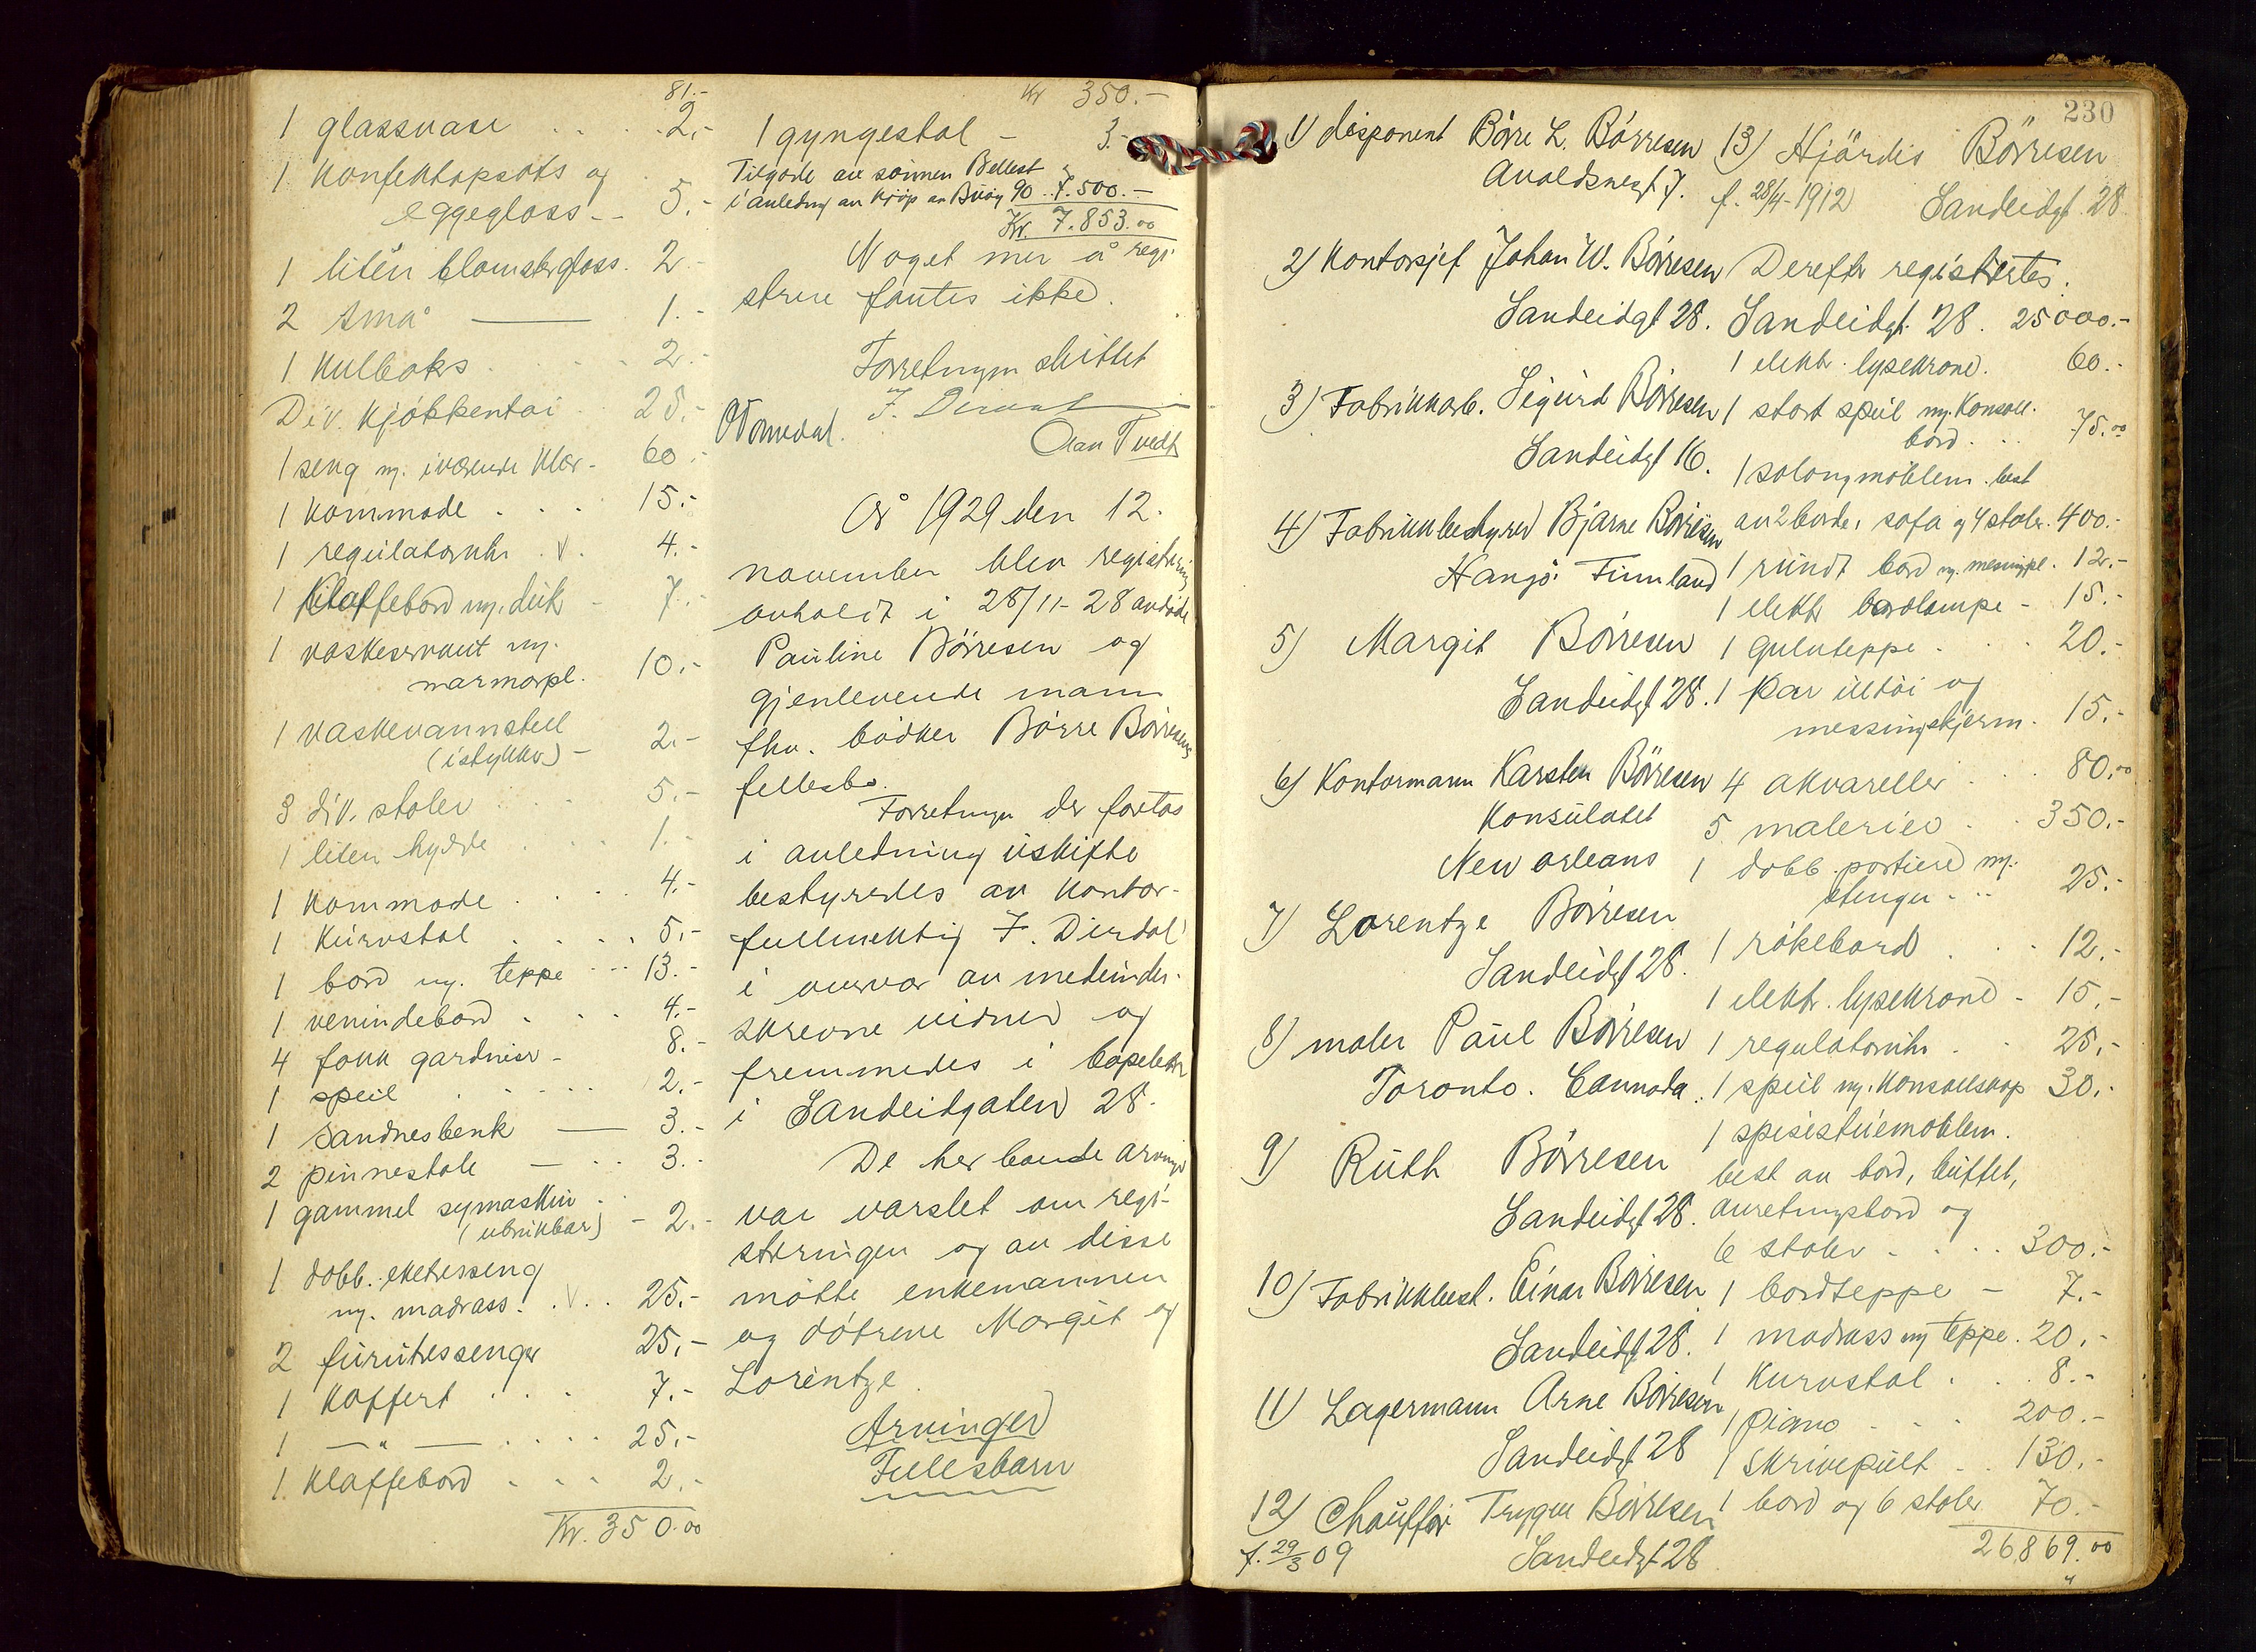 81.-
1 glassvase . . . . 2.-
1 Konfektopsats og
eggeglass - - 5.-
1 liten blomsterglass. 2.-
2 små —— 1.-
1 Kulboks . . . . 2.-
Div. Kjökkentöi . . 25.-
1 seng m. iværende klær - 60.-
1 Kommode . . . 15.-
1 regulatoruhr . V . 4.-
1 Klaffebord m. duk - 7.-
1 vaskeservant m.
marmorpl. 10.-
1 vaskevannstell
(istykker) - 2.-
3 div. stoler . . . 5.-
1 liten hylde . . . 1.-
1 Kommode . . . . 4.-
1 Kurvstol . . . . 5.-
1 bord m. teppe . . . 13.-
1 venindebord . . . 4.-
4 fakk gardiner - 8.-
1 speil . . . . 2.-
1 Sandnesbenk —— 3.-
2 pinnestole — . . 3.-
1 gammel symaskin . .
(ubrukbar) - 2.-
1 dobb. eketresseng
m. madrass. . V . . 25.-
2 furutressenger 25.-
1 Koffert . . . . 7.-
1 —"— . . . . 25.-
1 Klaffebord . . . . 2.-
Kr. 350.00
Kr 350.-
1 gyngestol - 3.-
Tilgode av sönnen Bellest
i anledning av Kjöp av Buöy 90 . 7.500.-
Kr. 7.853.00
Noget mer å regi-
strere fantes ikke.
Forretningen sluttet
J. Dirdal
O Tomedal.
Olav Tvedt
År 1929 den 12.
november blev registrering
avholdt i 28/11-28 avdöde
Pauline Börresen og
gjenlevende mann
fhv. bödker Börre Börresens
fellesbo.
Forretningen der foretas
i anledning uskifte
bestyredes av Kontor-
fullmektig J. Dirdal
i overvær av medunder-
skrevne vidner og
fremmedes i bopelen
i Sandeidgaten 28.
De her boende arvinger
var varslet om regi-
streringen og av disse
mötte enkemannen
og döterne Margit og
Lorentze.
Arvinger
Fellesbarn
230
1) disponent Börre L. Börresen
Avaldsnesgt 7.
2) Kontorsjef Johan W. Börresen
Sandeidgt 28.
3) Fabrikkarb. Sigurd Börresen
Sandeidgt 16.
4) Fabrikkbestyrer Bjarne Börresen
Hangö Finnland
5) Margit Börresen
Sandeidgt 28.
6) Kontormann Karsten Börresen
Konsulatet
New Orleans
7) Lorentze Börresen
Sandeidgt 28.
8) maler Paul Börresen
Toronto. Cannada.
9) Ruth Börresen
Sandeidgt 28.
10) Fabrikkbest. Einar Börresen
Sandeidgt 28.
11) Lagermann Arne Börresen
Sandeidgt 28
12) Chaufför Trygve Börresen
f. 29/3 09 Sandeidgt 28
13) Hjördis Börresen
f. 28/4-1912 Sandeidgt. 28
Derefter registrertes.
Sandeidgt. 28. 25000.-
1 elektr. lysekrone. 60.-
1 stort speil m. Konsoll.
bord . . . 75.00
1 salongmöblem. best
av 2 borde, sofa og 4 stoler. 400.-
1 rundt bord m. messingpl. 12.-
1 elektr bordlampe - 15.-
1 gulvteppe . . . 20.-
1 par ildtöi og
messingskjerm. 15.-
4 akvareller . . . 80.00
5 malerier . . 350.-
1 dobb. portiere m.
stenger . . . 25.-
1 rökebord . . . 12.-
1 elektr. lysekrone - 15.-
1 regulatoruhr . . 25.-
1 speil m. Konsollskap 30.-
1 spisestuemöblem.
best av bord, buffet,
anretningsbord og
6 stoler . . . . 300.-
1 bordteppe - 7.-
1 madrass m teppe . 20.-
1 Kurvstol . . . 8.-
1 piano . . . . 200.-
1 Skrivepult . . 130.-
1 bord og 6 stoler 70.-
26869.00